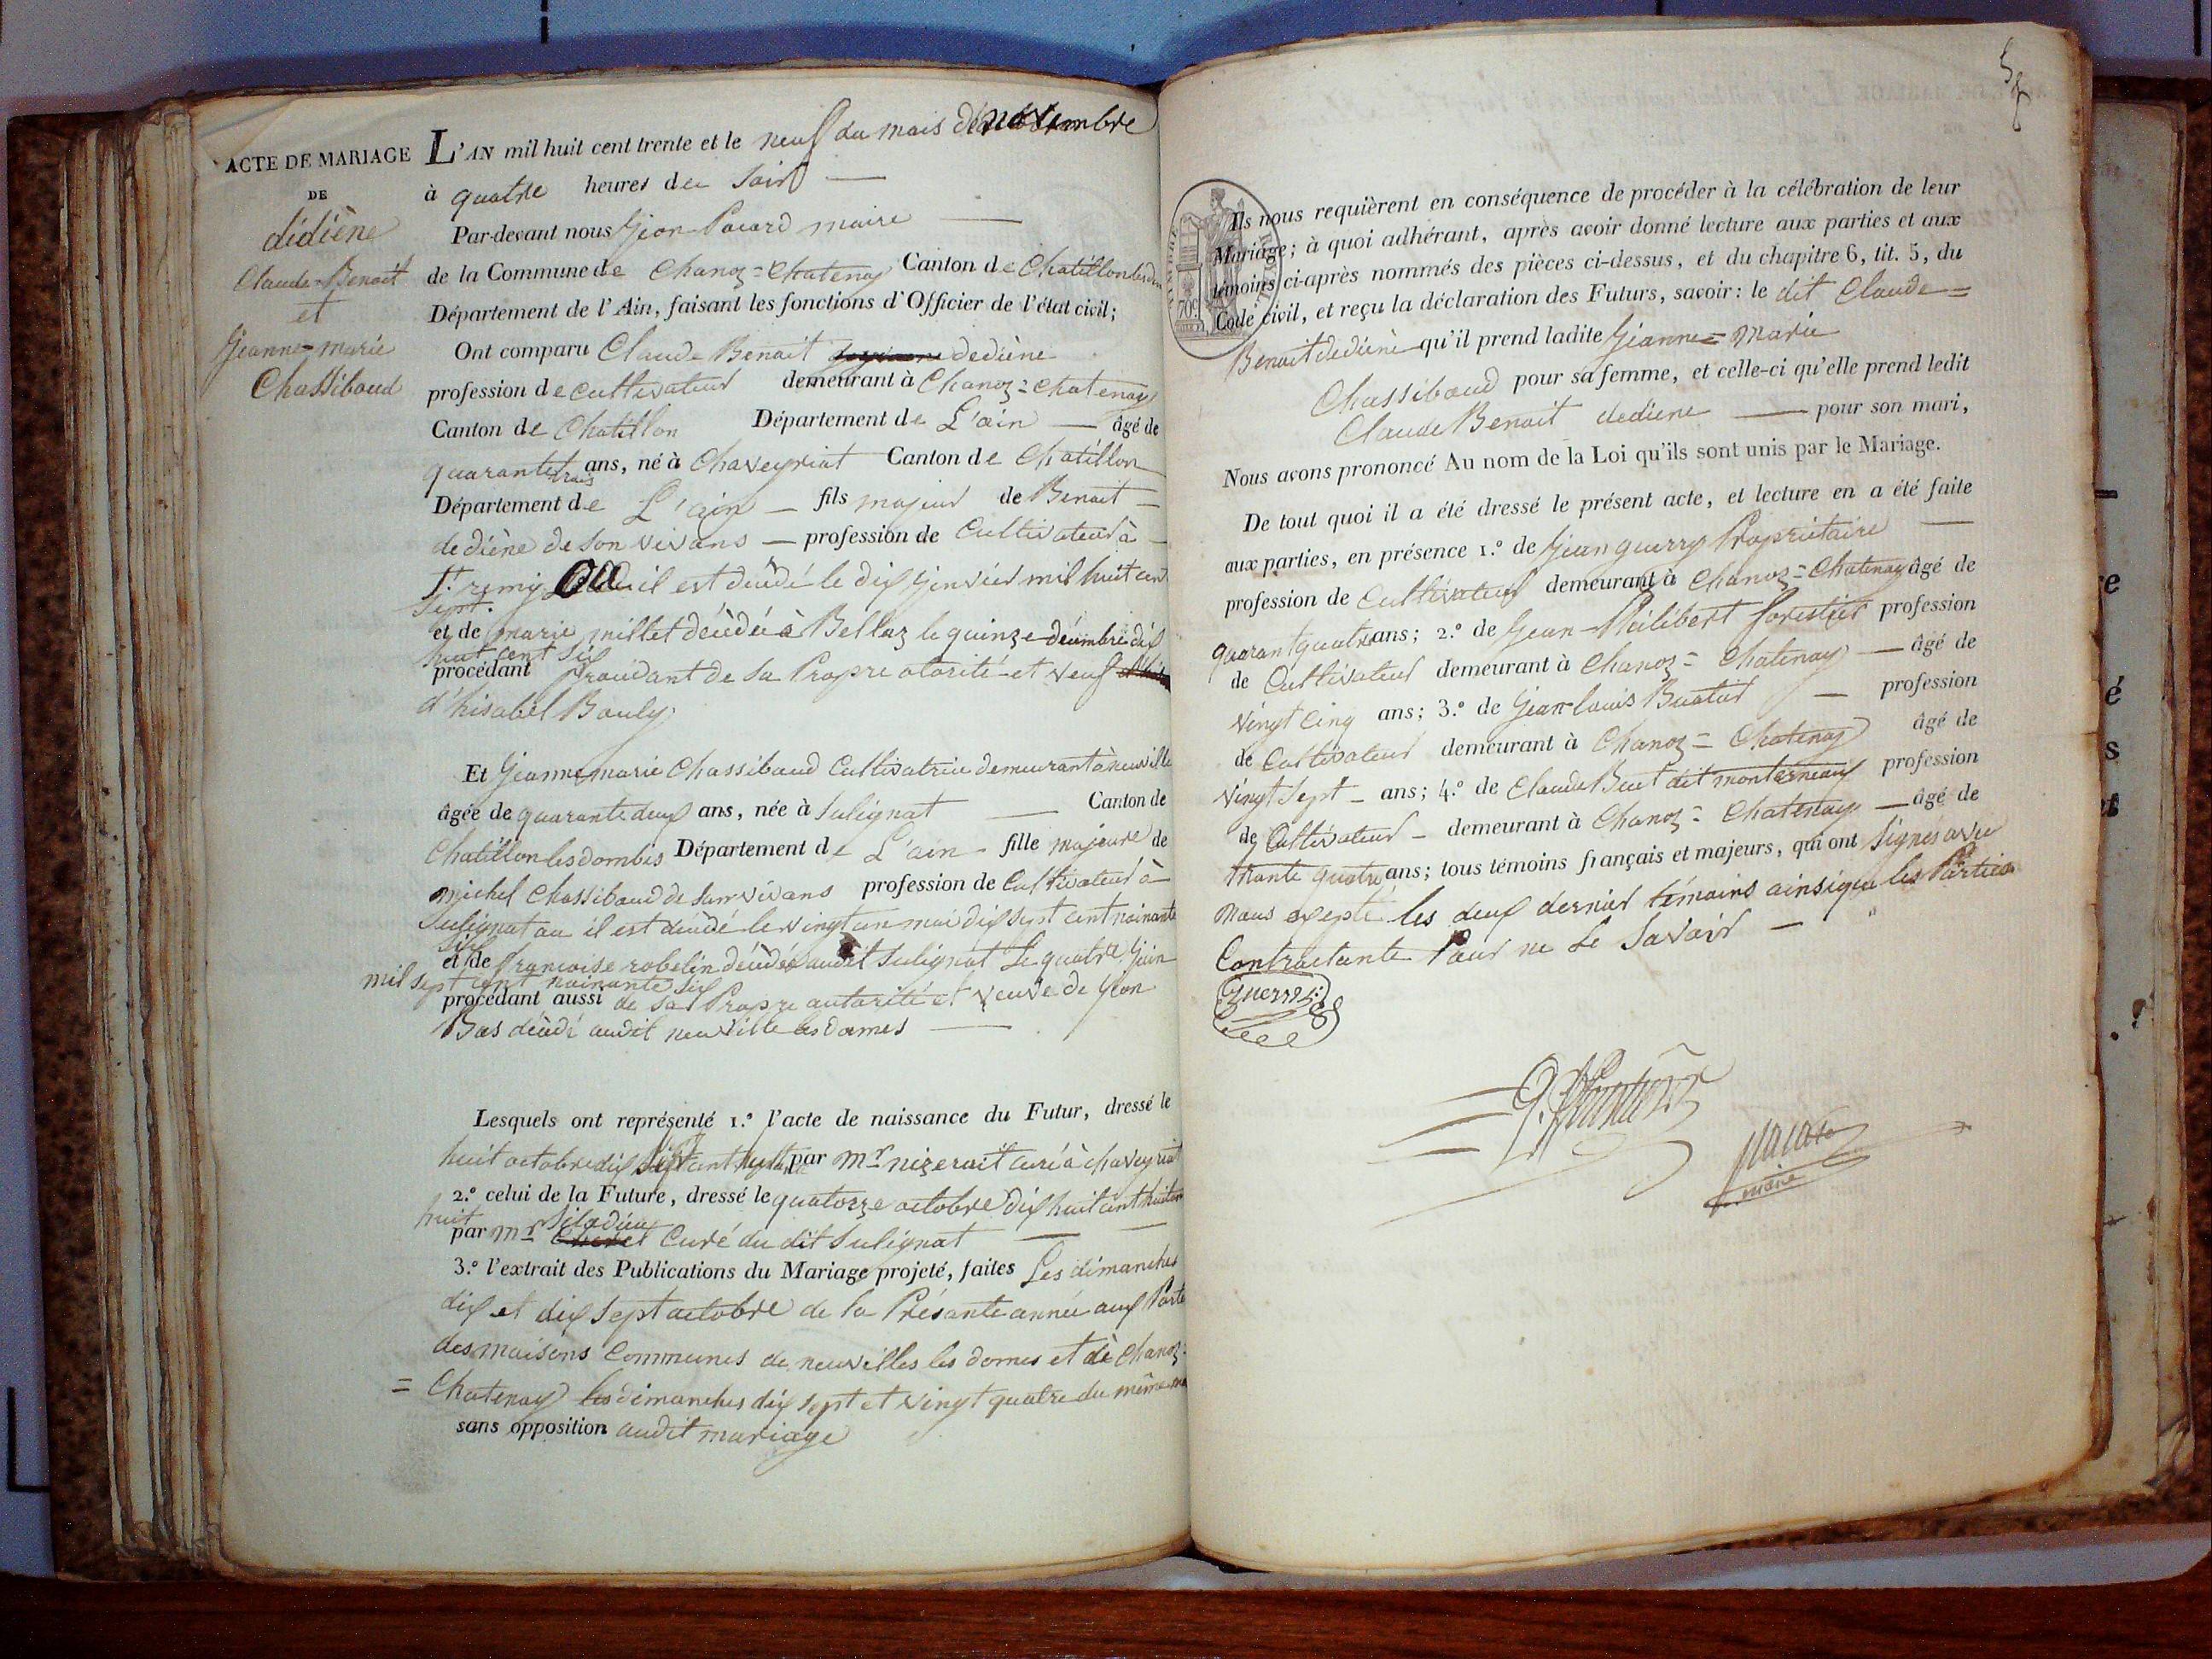 ACTE DE MARIAGE
DE
didiène
Claude-Benoit
et
Jeanne-marie
Chassiboud
L'AN mil huit cent trente et le neuf du mais de novembre
à quatre heures du Soir
Par-devant nous Jean Pacard maire
de la Commune de Chanoz=Chatenay Canton de Chatillon
Département de l'Ain, faisant les fonctions d'Officier de l'état civil;
Ont comparu Claude Benoit dediène
profession de cultivateur demeurant à Chanoz=chatenay
Canton de Chatillon Département de L'ain âgé de
quarante trois ans, né à Chaveyriat Canton de Chatillon
Département de L'ain fils majeur de Benoit
dediène de son vivans profession de Cultivateur à
St. remy où il est décédé le dix Jenvier mil huit cent
Sept.
et de marie millet décédée à Bellaz le quinze décembre dix
huit cent six
procédant procédant de sa Propre otorité et veuf
d'hisabel Bouly
Et Jeanne marie Chassiboud Cultivatrice demeurant à neuville
âgée de quarante deux ans, née à Sulignat Canton de
Chatillon les dombes Département de L'ain fille majeure de
michel Chassiboud de son vivans profession de Cultivateur à
Sulignat ou il est décédé le vingt un mai dix sept cent noinante
six
et de francoise robelin décédée audit Sulignat Le quatre Juin
mil sept cent noinante six
procédant aussi de sa Propre autorité et veuve de Jean
Bas décédé audit neuville les dames
Lesquels ont représenté 1.º l'acte de naissance du Futur, dressé le
huit octobre dix sept cent par Mr nizerait curé à chaveyriat
2.º celui de la Future, dressé le quatorze octobre dix huit cent huitante
huit
par Mr Curé du dit Sulignat
3.º l'extrait des Publications du Mariage projeté, faites Les dimanches
dix et dix sept octobre de la Présante année aux Porte
des maisons Communes de neuvilles les domes et dè Chanoz
= Chatenay les dimanches dix sept et vingt quatre du même
sans opposition audit mariage
Ils nous requièrent en conséquence de procéder à la célébration de leur
Mariage; à quoi adhérant, après avoir donné lecture aux parties et aux
témoins ci-après nommés des pièces ci-dessus, et du chapitre 6, tit. 5, du
Code civil, et reçu la déclaration des Futurs, savoir: le dit Claude=
Benoit dediène qu'il prend ladite Jeanne=marie
Chassiboud pour sa femme, et celle-ci qu'elle prend ledit
Claude Benoit dediene pour son mari,
Nous avons prononcé Au nom de la Loi qu'ils sont unis par le Mariage.
De tout quoi il a été dressé le présent acte, et lecture en a été faite
aux parties, en présence 1.º de Jean guerry Propriétaire
profession de Cultivateur demeurant à Chanoz=Chatenay âgé de
quarant quatre ans; 2.º de Jean-Philibert forestier profession
de Cultivateur demeurant à Chanoz=Chatenay âgé de
vingt cinq ans; 3.º de Jean louis Buatier profession
de Cultivateur demeurant à Chanoz=Chatenay âgé de
vingt Sept ans; 4.º de Claude But dit monterneaux profession
de Cultivateur demeurant à Chanoz=Chatenay âgé de
trante quatre ans; tous témoins français et majeurs, qui ont Signés avec
nous exepté les deux dernier témoins ainsique les Parties
Contractante Pour ne Le Savoir
Guerry
maire
70c